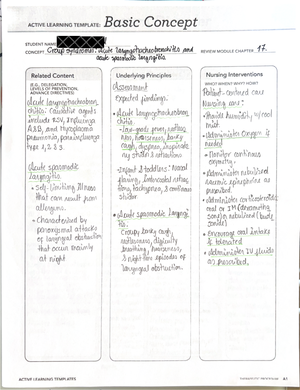 ACTIVE LEARNING TEMPLATE: Basic Concept
STUDENT NAME
CONCEPT Croup Syndromes: Acute laryngotracheobronchitis and
acute spasmodic laryngitis
REVIEW MODULE CHAPTER 17
Related Content
(E.G., DELEGATION,
LEVELS OF PREVENTION,
ADVANCE DIRECTIVES)
Acute laryngotracheobron
chitis: Causative agents
include RSV, Influenza
A & B, and mycoplasma
pneumonia, parainfluenza
type 1, 2 & 3.
Acute spasmodic
laryngitis
• Self-limiting illness
that can result from
allergens.
• Characterized by
paroxysmal attacks
of laryngeal obstruction
that occur mainly
at night
Underlying Principles
Assessment
Expected findings:
• Acute laryngotracheobron
chitis
- Low-grade fever, restless
ness, hoarseness, barky
cough, dyspnea, inspirato
ry stridor & retractions
• Infant & toddlers: Nasal
flaring, intercostal retrac
tions, tachypnea, & continuous
stridor
• Acute spasmodic laryngi
tis:
Croupy barky cough,
restlessness, difficulty
breathing, hoarseness,
& nighttime episodes of
laryngeal obstruction.
Nursing Interventions
WHO? WHEN? WHY? HOW?
Patient-centered care
Nursing care:
• Provide humidity w/ cool
mist
• Administer oxygen if
needed
• Monitor continuous
oximetry.
• Administer nebulized
racemic epinephrine as
prescribed.
• Administer corticosteroids:
oral or IM (dexametha
sone) or nebulized (bude
sonide)
• Encourage oral intake if
tolerated
• Administer IV fluids
as prescribed.
ACTIVE LEARNING TEMPLATES
A1